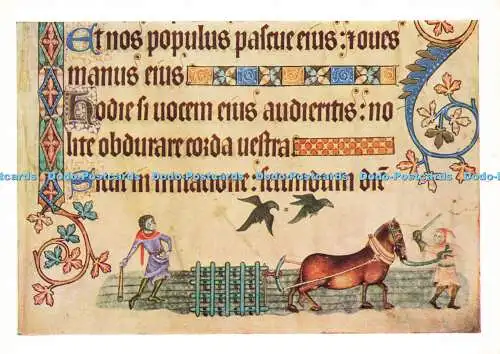 Et nos populus pascue eius: ⁊ oues
manus eius
Hodie si uocem eius audieritis: no
lite obdurare corda uestra
Sicut in irritatione: secundum
Dodo-Postcards Dodo-Postcards Dodo-Postcards Dodo-Postcards